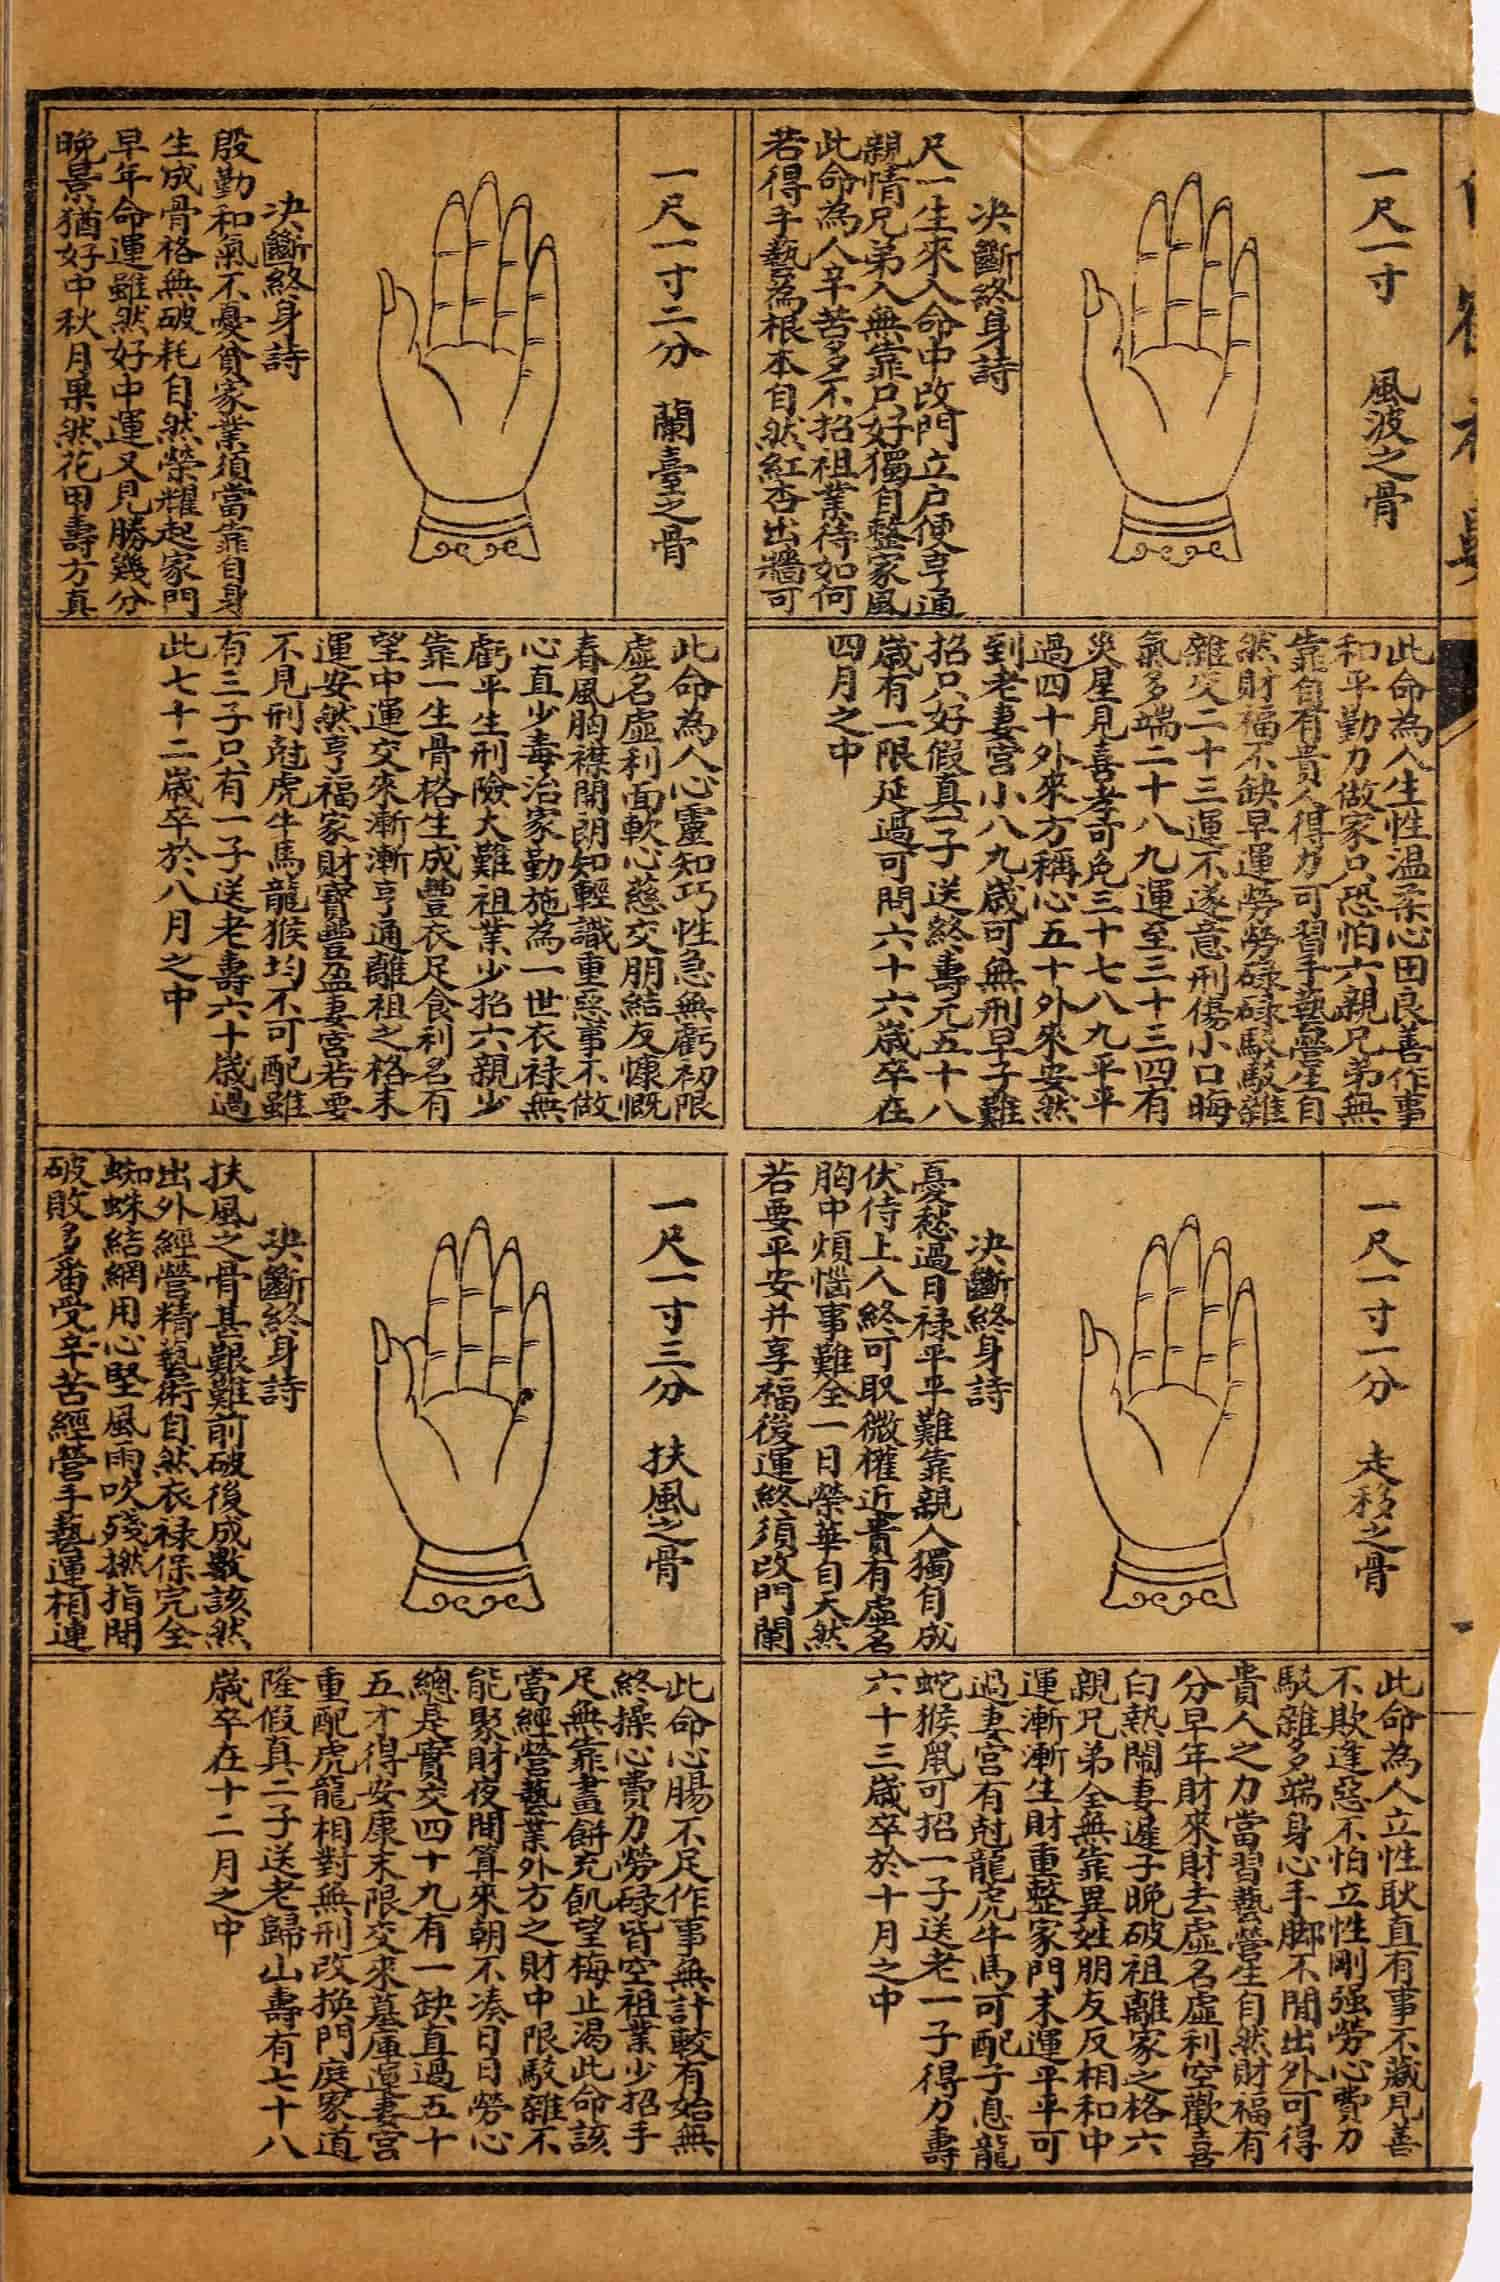 一尺一寸　風波之骨
決斷終身詩
尺一生來人命中改門立户便亨通
親情兄弟人無靠只好獨自整家風
此命為人辛苦多不招祖業待如何
若得手藝為根本自然紅杏出牆可
此命為人生性温柔心田良善作事
和平勤力做家只恐怕六親兄弟無
靠自有貴人得力可習手藝營生自
然財福不缺早運勞勞碌碌駁駁雜
雜交二十三運不遂意刑傷小口晦
氣多端二十八九運至三十三四有
災星見喜孝可免三十七八九平平
過四十外來方稱心五十外來安然
到老妻宮小八九歲可無刑早子難
招只好假真一子送終壽元五十八
歲有一限延過可問六十六歲卒在
四月之中
一尺一寸二分　蘭臺之骨
決斷終身詩
殷勤和氣不憂貧家業須當靠自身
生成骨格無破耗自然榮耀起家門
早年命運雖然好中運又見勝幾分
晚景猶好中秋月果然花甲壽方真
此命為人心靈知巧性急無虧初限
虛名虛利面軟心慈交朋結友慷慨
春風胸襟開朗知輕識重惡事不做
心直少毒治家勤施為一世衣祿無
虧平生刑險大難祖業少招六親少
靠一生骨格生成豐衣足食利名有
望中運交來漸漸亨通離祖之格末
運安然亨福家財寶豐盈妻宮若要
不見刑尅虎牛馬龍猴均不可配雖
有三子只有一子送老壽六十歲過
此七十二歲卒於八月之中
一尺一寸一分　走移之骨
決斷終身詩
憂愁過日禄平平難靠親人獨自成
伏侍上人終可取微權近貴有虛名
胸中煩惱事難全一日榮華自天然
若要平安并享福後運終須改門闌
此命為人立性耿直有事不藏見善
不欺逢惡不怕立性剛强勞心費力
駁雜多端身心手脚不閒出外可得
貴人之力當習藝營生自然財福有
分早年財來財去虛名虛利空歡喜
白熱鬧妻遲子晚破祖離家之格六
親兄弟全無靠異姓朋友反相和中
運漸漸生財重整家門末運平平可
過妻宮有尅龍虎牛馬可配子息龍
蛇猴鼠可招一子送老一子得力壽
六十三歲卒於十月之中
一尺一寸三分　扶風之骨
決斷終身詩
扶風之骨甚艱難前破後成數該然
出外經營精藝術自然衣禄保完全
蜘蛛結網用心堅風雨吹殘撚指間
破敗多番受辛苦經營手藝運相連
此命心腸不足作事無計較有始無
終操心費力勞碌皆空祖業少招手
足無靠畫餅充飢望梅止渴此命該
當經營藝業外方之財中限駁雜不
能聚財夜間算來朝不凑日日勞心
總是實交四十九有一缺直過五十
五才得安康末限交來墓庫運妻宮
重配虎龍相對無刑改換門庭家道
隆假真二子送老歸山壽有七十八
歲卒在十二月之中